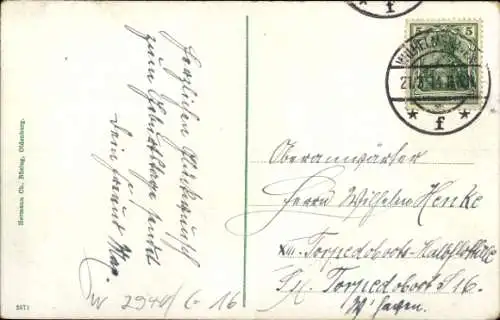 Herzlichen Glückwunsch
zum Geburtstage sendet
Dein Freund Max.
Hermann Ch. Büsing, Oldenburg.
5871
5 5
WILHELMSHAVEN
* f *
f
Oberanwärter
Herrn Wilhelm Henke
XIII. Torpedoboots-Halbflottille
S.M. Torpedoboot S 16.
W'haven